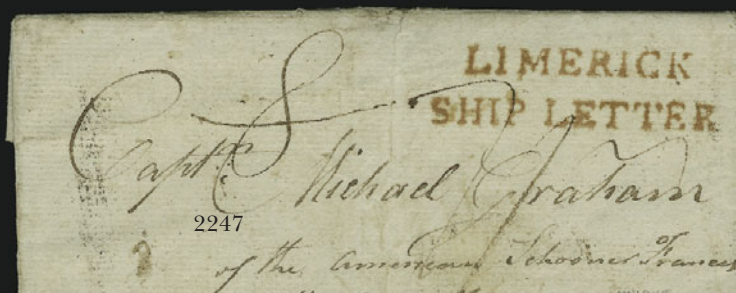 LIMERICK
SHIP LETTER
Captn. Michael Graham
2247
of the American Schooner Frances